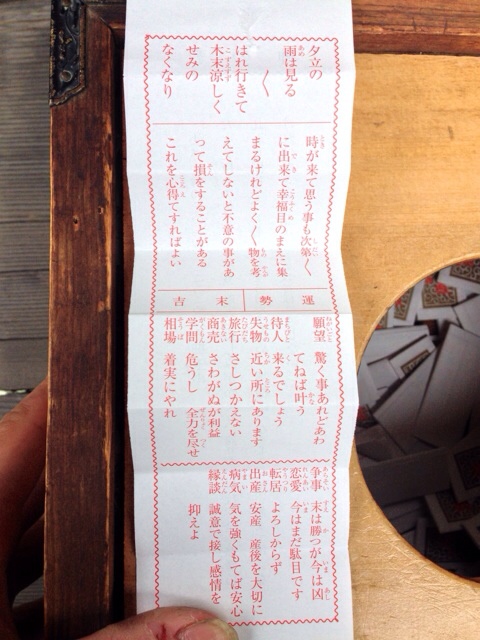 夕立の
雨は見る
〱
はれ行きて
木末涼しく
せみの
なくなり
時が来て思う事も次第〱
に出来て幸福目のまえに集
まるけれどよく〱物を考
えてしないと不意の事があ
って損をすることがある
これを心得てすればよい
運勢
末吉
願望 驚く事あれどあわ
てねば叶う
待人 来るでしょう
失物 近い所にあります
旅行 さしつかえない
商売 さわがぬが利益
学問 危うし 全力を尽せ
相場 着実にやれ
争事 末は勝つが今は凶
恋愛 今はまだ駄目です
転居 よろしからず
出産 安産 産後を大切に
病気 気を強くもてば安心
縁談 誠意で接し感情を
抑えよ